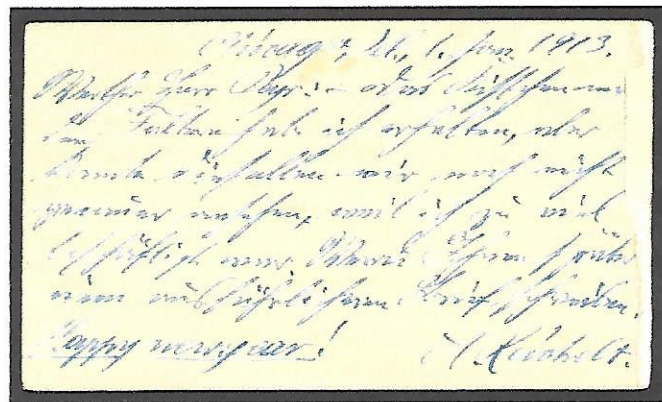 Chicago, Ill., 1. Jan. 1913.
Werther Herr
den Faltern habe ich erhalten, aber
konnte dieselben mir noch nicht
genauer ansehen, weil ich zu viel
beschäftigt war. Werde Ihnen später
einen ausführlichern Brief schreiben.
Happy new year! A.